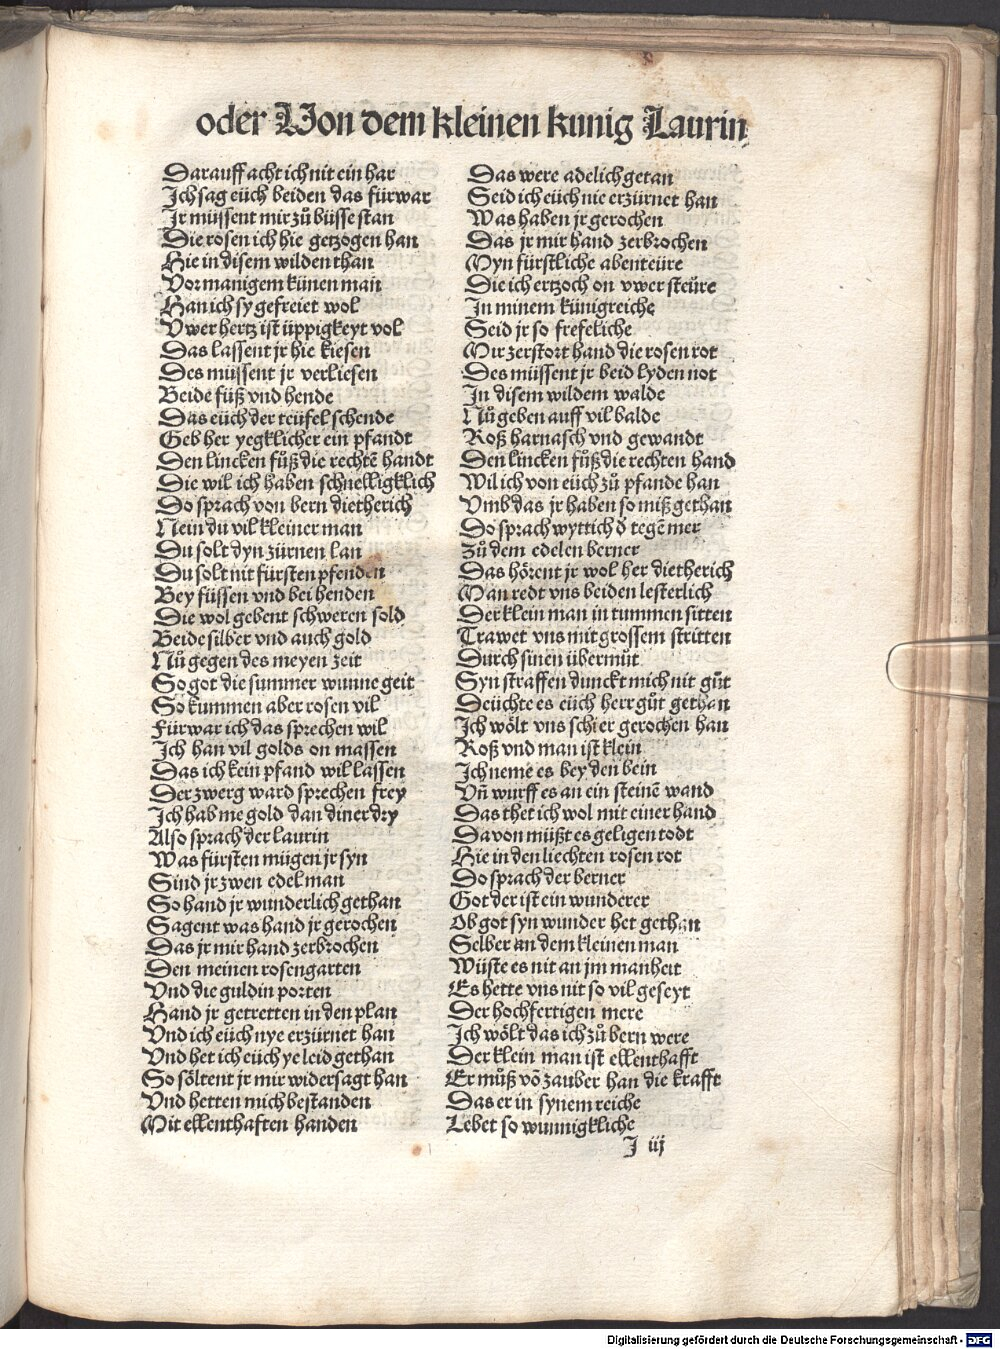 oder Von dem kleinen kunig Laurin
Darauff acht ich nit ein har
Ich sag eüch beiden das fürwar
Ir müssent mir zů bůsse stan
Die rosen ich hie getzogen han
Hie in disem wilden than
Vor manigem künen man
Han ich sy gefreiet wol
Vwer hertz ist üppigkeyt vol
Das lassent jr hie kiesen
Des müssent jr verliesen
Beide füß vnd hende
Das eüch der teüfel schende
Geb her yegklicher ein pfandt
Den lincken fůß die rechtē handt
Die wil ich haben schnelligklich
Do sprach von bern dietherich
Nein du vil kleiner man
Du solt dyn zürnen lan
Du solt nit fürsten pfenden
Bey füssen vnd bei henden
Die wol gebent schweren sold
Beide silber vnd auch gold
Nů gegen des meyen zeit
So got die summer wunne geit
So kummen aber rosen vil
Fürwar ich das sprechen wil
Ich han vil golds on massen
Das ich kein pfand wil lassen
Der zwerg ward sprechen frey
Ich hab me gold dan diner dry
Also sprach der laurin
Was fürsten mügen jr syn
Sind jr zwen edel man
So hand jr wunderlich gethan
Sagent was hand jr gerochen
Das jr mir hand zerbrochen
Den meinen rosengarten
Vnd die guldin porten
Hand jr getretten in den plan
Vnd ich eüch nye erzürnet han
Vnd het ich eüch ye leid gethan
So söltent jr mir widersagt han
Vnd hetten mich bestanden
Mit ellenthaften handen
Das were adelich getan
Seid ich eüch nie erzürnet han
Was haben jr gerochen
Das jr mir hand zerbrochen
Myn fürstliche abenteüre
Die ich ertzoch on vwer steüre
In minem künigreiche
Seid jr so frefeliche
Mir zerstort hand die rosen rot
Des müssent jr beid lyden not
In disem wildem walde
Nů geben auff vil balde
Roß harnasch vnd gewandt
Den lincken fůß die rechten hand
Wil ich von eüch zů pfande han
Vmb das jr haben so miß gethan
Do sprach wyttich ď tegē mer
Zů dem edelen berner
Das hörent jr wol her dietherich
Man redt vns beiden lesterlich
Der klein man in tummen sitten
Trawet vns mit grossem stritten
Durch sinen übermůt
Syn straffen dunckt mich nit gůt
Deüchte es eüch herr gůt gethan
Ich wölt vns schier gerochen han
Roß vnd man ist klein
Ich neme es bey den bein
Vñ wurff es an ein steinē wand
Das thet ich wol mit einer hand
Da von müßt es geligen todt
Hie in den liechten rosen rot
Do sprach der berner
Got der ist ein wunderer
Ob got syn wunder het gethan
Selber an dem kleinen man
Wüste es nit an jm manheit
Es hette vns nit so vil geseyt
Der hochfertigen mere
Ich wölt das ich zů bern were
Der klein man ist ellenthafft
Er můß vō zauber han die krafft
Das er in synem reiche
Lebet so wunnigkliche
I iij
Digitalisierung gefördert durch die Deutsche Forschungsgemeinschaft - DFG